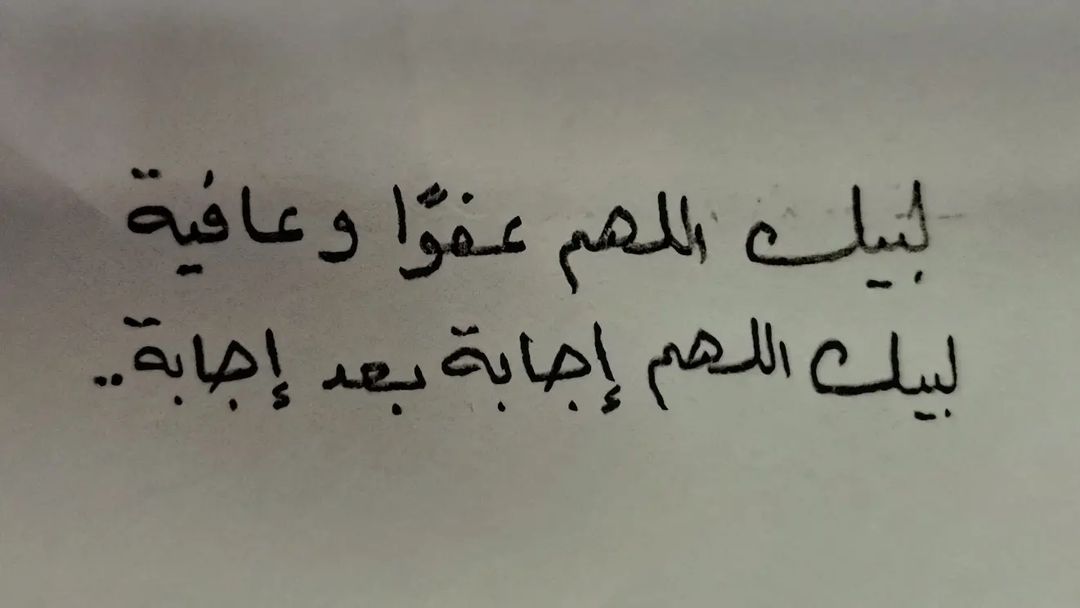 لبيك اللهم عفوًا وعافية
لبيك اللهم إجابة بعد إجابة..